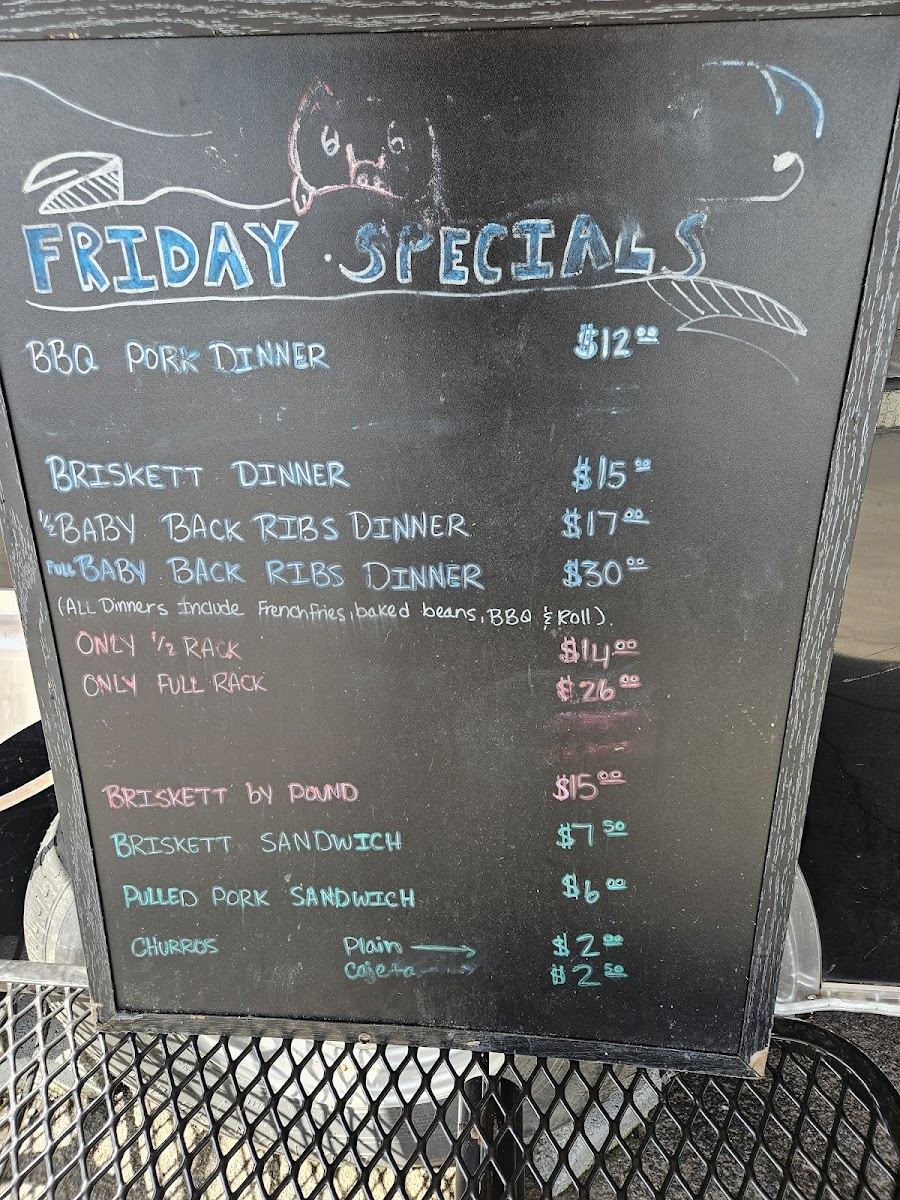 FRIDAY SPECIALS
BBQ PORK DINNER $12.00
BRISKETT DINNER $15.00
1/2 BABY BACK RIBS DINNER $17.00
FULL BABY BACK RIBS DINNER $30.00
(ALL Dinners Include French fries, baked beans, BBQ & Roll).
ONLY 1/2 RACK $14.00
ONLY FULL RACK $26.00
BRISKETT by POUND $15.00
BRISKETT SANDWICH $7.50
PULLED PORK SANDWICH $6.00
CHURROS Plain → $2.00
Cajeta → $2.50